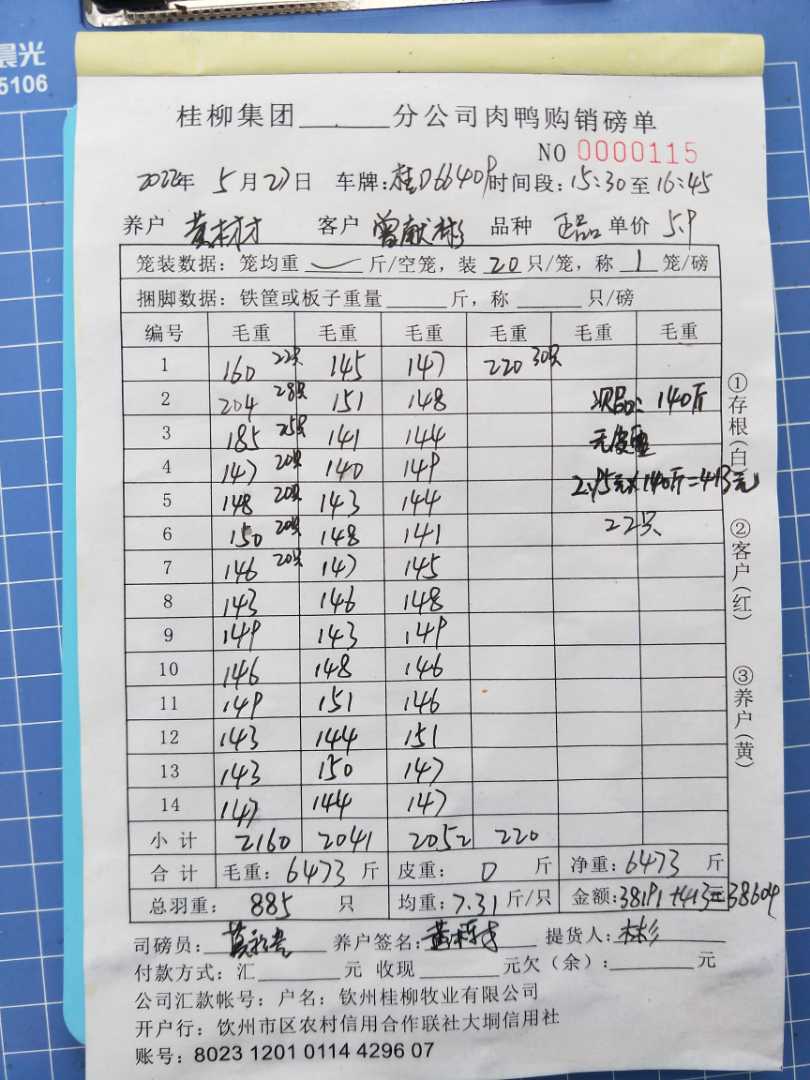 晨光
5106
桂柳集团______分公司肉鸭购销磅单
NO 0000115
2022年 5月27日 车牌:桂D66409 时间段:15:30至16:45
养户 黄木才 客户 曾献彬 品种 正品 单价 5.9
笼装数据: 笼均重 ____ 斤/空笼, 装 20 只/笼, 称 1 笼/磅
捆脚数据: 铁筐或板子重量______斤, 称______只/磅
编号 毛重 毛重 毛重 毛重 毛重 毛重
1 160 22只 145 147 220 30只
2 204 28只 151 148 次品: 140斤
3 185 25只 141 144 无皮重
4 147 20只 140 149
5 148 20只 143 144 2.95元×140斤=413元
6 150 20只 148 141 22只
7 146 20只 147 145
8 143 146 148
9 149 143 149
10 146 148 146
11 149 151 146
12 143 144 151
13 143 150 147
14 147 144 147
小计 2160 2041 2052 220
合计 毛重: 6473 斤 皮重: 0 斤 净重: 6473 斤
总羽重: 885 只 均重: 7.31 斤/只 金额: 38191+413=38604
司磅员: 养户签名: 提货人: 林彬
付款方式: 汇______元 收现______元欠(余):______元
公司汇款帐号: 户名: 钦州桂柳牧业有限公司
开户行: 钦州市区农村信用合作联社大垌信用社
账号: 8023 1201 0114 4296 07
①存根(白)
②客户(红)
③养户(黄)